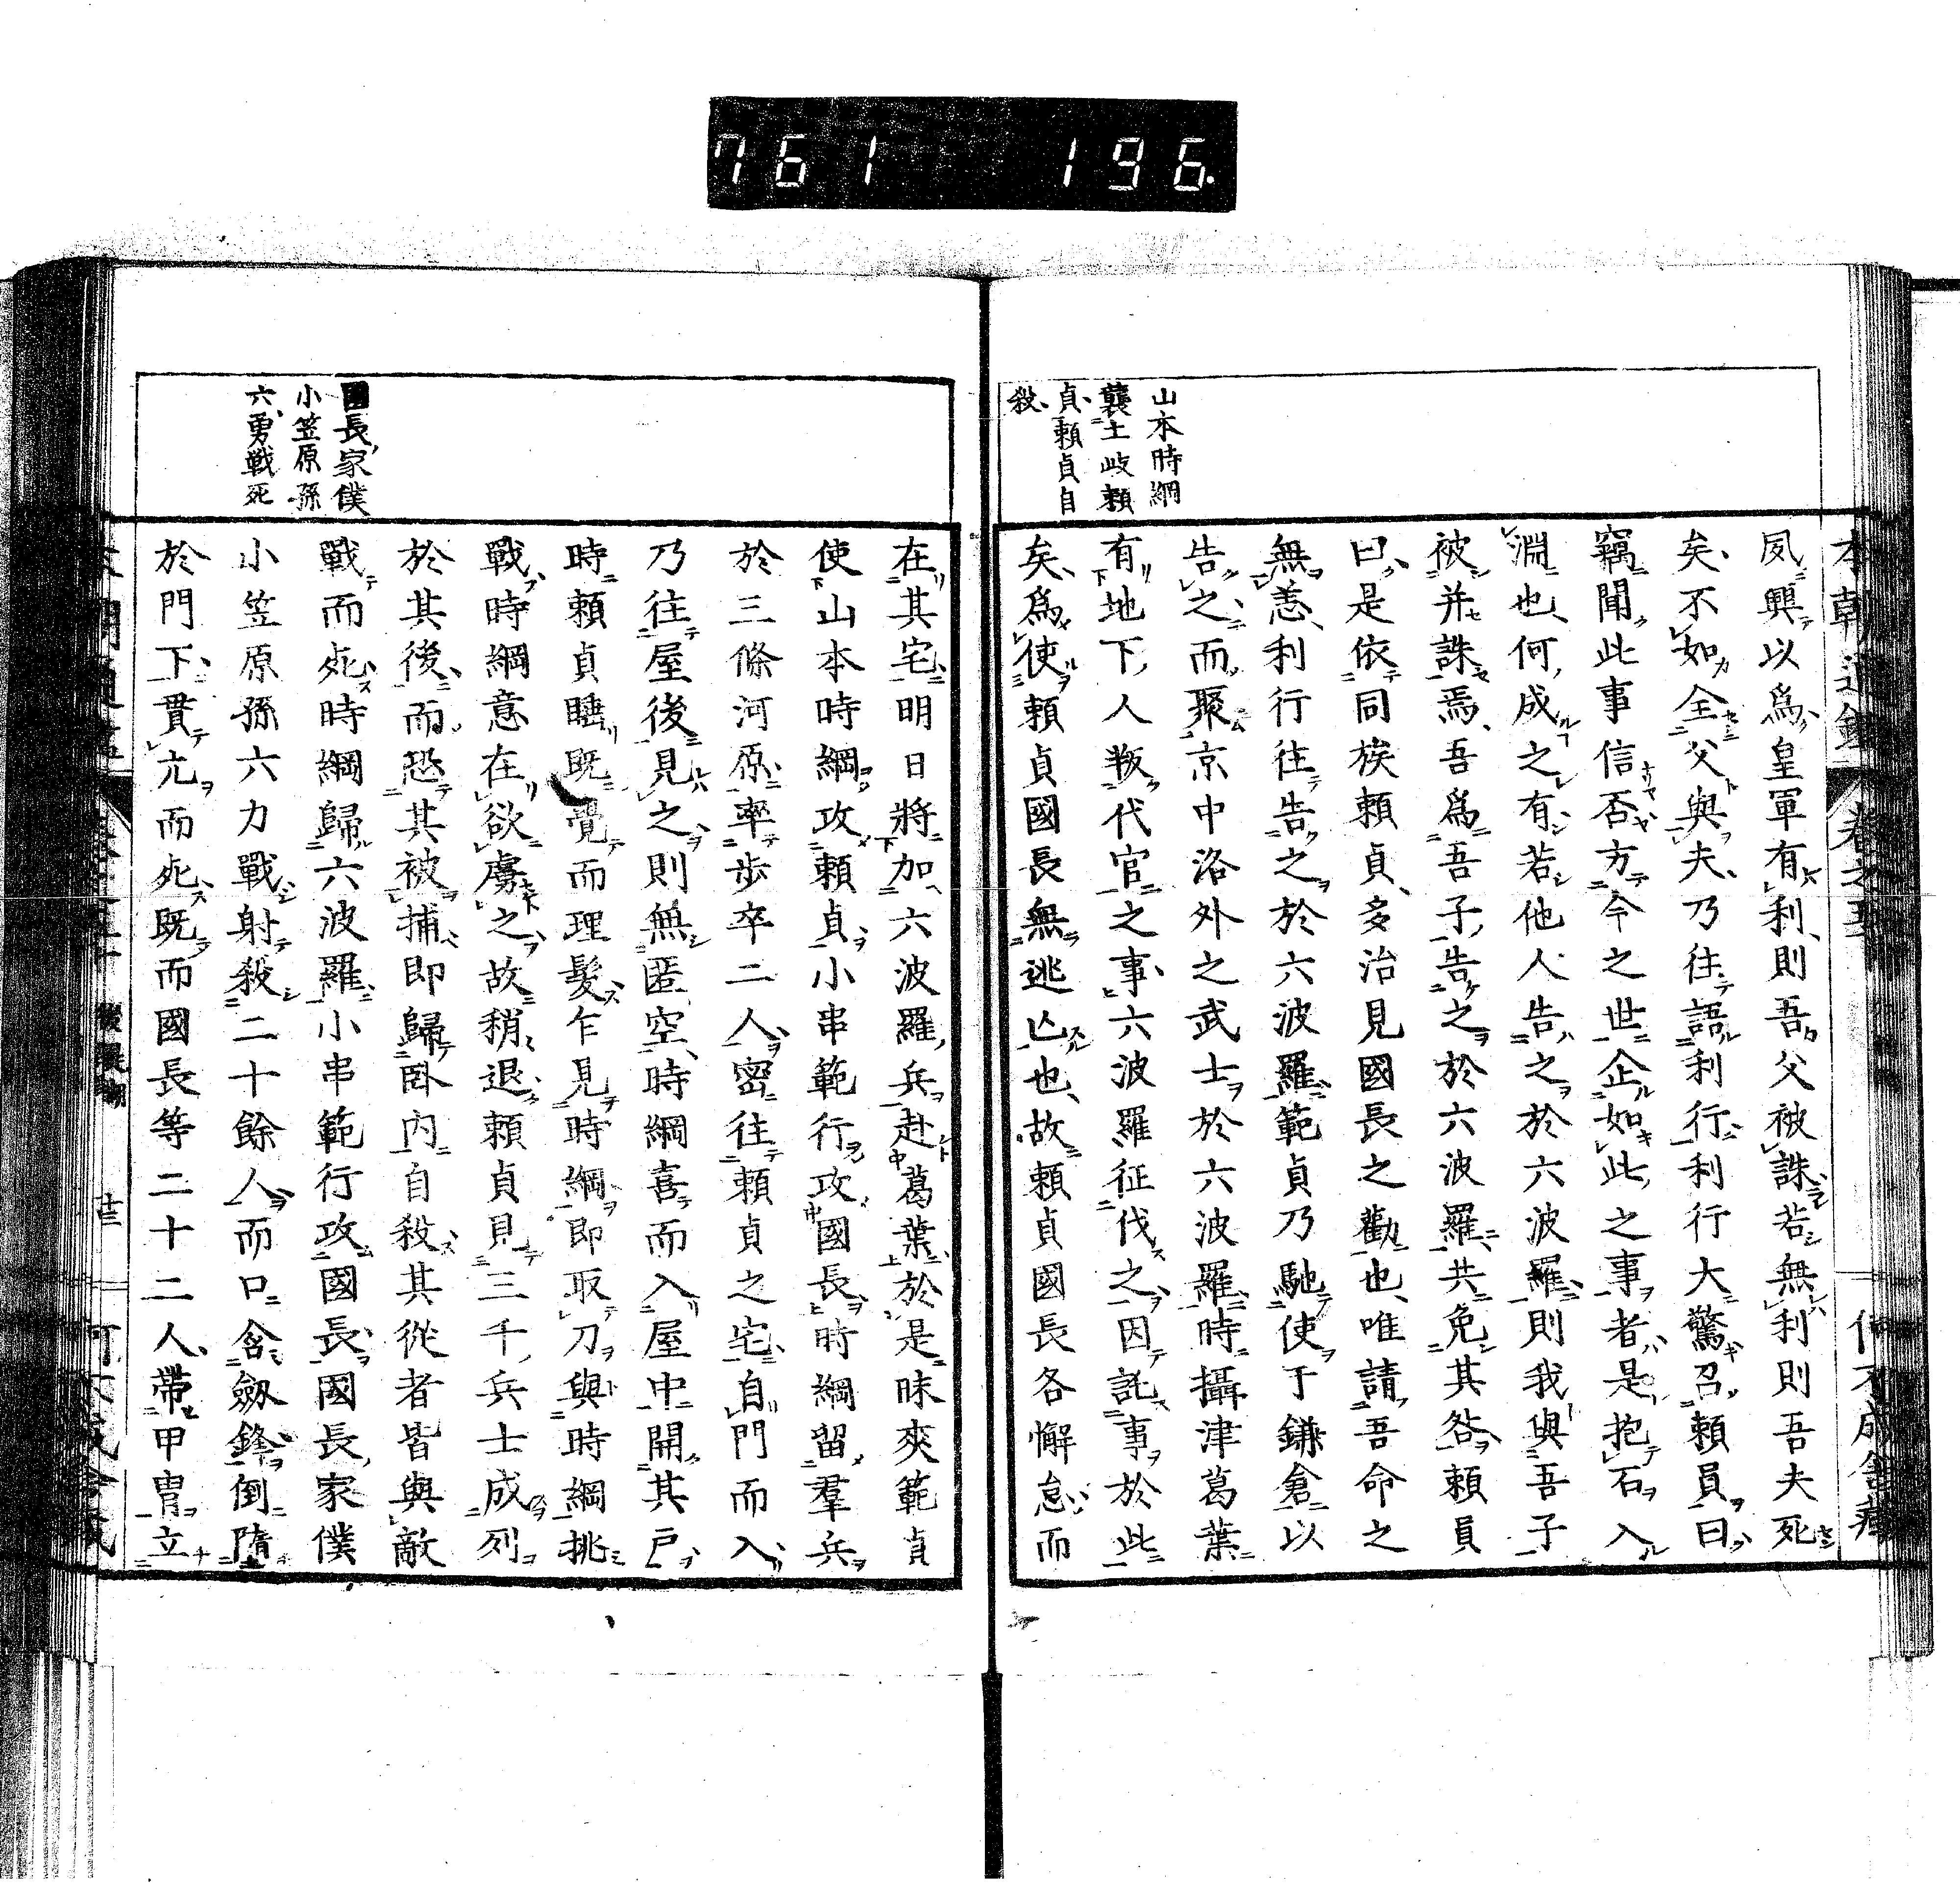 761 196.
山本時綱
襲土岐賴
貞賴貞自
殺
夙興以爲皇軍有利則吾父被誅若無利則吾夫死
矣不如全父與夫乃往語利行利行大驚召賴員曰
竊聞此事信否方今之世企如此之事者是抱石入
淵也何成之有若他人告之於六波羅則我與吾子
被并誅焉吾爲吾子告之於六波羅共免其咎賴員
曰是依同族賴貞多治見國長之勸也唯請吾命之
無恙利行往告之於六波羅範貞乃馳使于鎌倉以
告之而聚京中洛外之武士於六波羅時攝津葛葉
有地下人叛代官之事六波羅征伐之因託事於此
矣爲使賴貞國長無逃亾也故賴貞國長各懈怠而
國長家僕
小笠原孫
六勇戰死
在其宅明日將加六波羅兵赴葛葉於是昧爽範貞
使山本時綱攻賴貞小串範行攻國長時綱留羣兵
於三條河原率步卒二人密往賴貞之宅自門而入
乃往屋後見之則無匿空時綱喜而入屋中開其戶
時賴貞睡既覺而理髮乍見時綱即取刀與時綱挑
戰時綱意在欲虜之故稍退賴貞見三千兵士成列
於其後而恐其被捕即歸臥內自殺其從者皆與敵
戰而死時綱歸六波羅小串範行攻國長國長家僕
小笠原孫六力戰射殺二十餘人而口含劔鋒倒墮
於門下貫亢而死既而國長等二十二人帶甲冑立